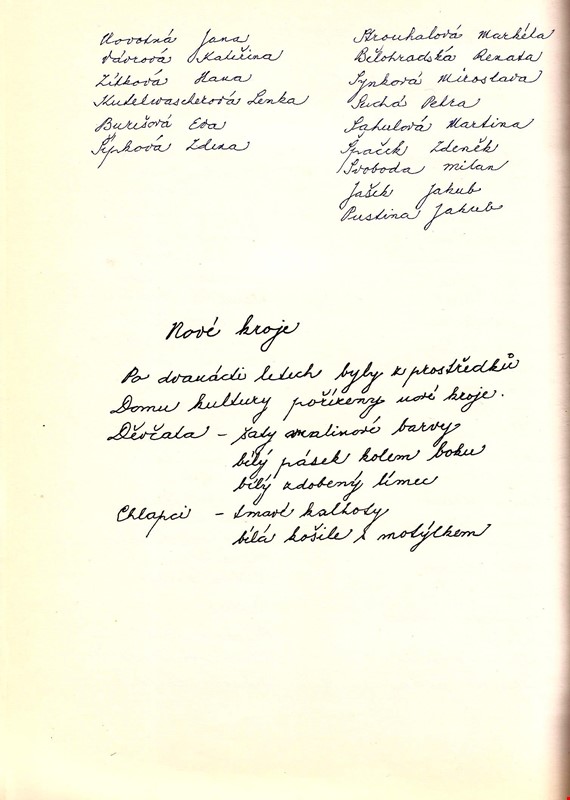 Novotná Jana
Vávrová Kateřina
Zítková Hana
Kutelwascherová Lenka
Burišová Eva
Šípková Zdena
Strouhalová Markéta
Bělohradská Renata
Synková Miroslava
Suchá Petra
Sahulová Martina
Špaček Zdeněk
Svoboda Milan
Jašek Jakub
Pustina Jakub
Nové kroje
Po dvanácti letech byly z prostředků
Domu kultury pořízeny nové kroje.
Děvčata – šaty malinové barvy
bílý pásek kolem boku
bílý zdobený límec
Chlapci – tmavé kalhoty
bílá košile s motýlkem